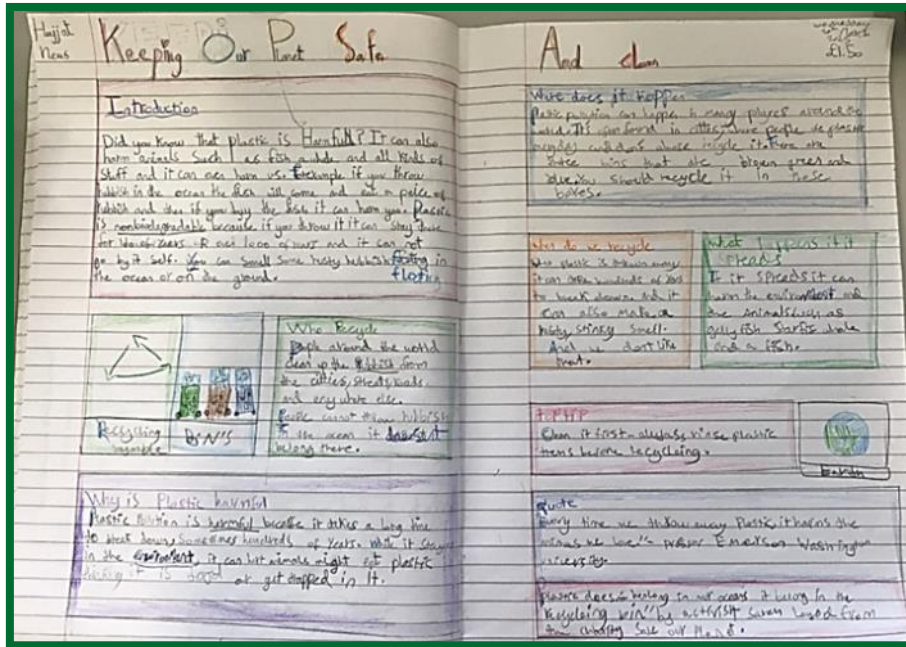 Hajjat
News
Keeping Our Planet Safe
Introduction
Did you know that plastic is Harmfull? It can also
harm animals such as fish a whale and all kinds of
stuff and it can even harm us. if you throw
rubbish in the ocean the fish will come and eat a peice of
rubbish and then if you buy the fish it can harm you. Plastic
is nonbiodegradable because if you throw it it can stay there
for 100 of years or even 1000 of years and it can not
go by it self. You can smell some nasty rubbish floting in
the ocean or on the ground. floting
Recycling
BIN'S
Who Recycle
People around the world
clean up the rubbish from
the citties, streets, roads
and eny where else.
People cannot throw rubbish
in the ocean it
belong there.
Why is Plastic harmful
Plastic Polution is harmful because it takes a long time
to break down, sometimes hundreds of years. While it stays
in the environment, it can hurt animals might eat plastic
thinking it is food or get trapped in it.
And clean
Wednesday
£1.50
Where does it happen
Plastic polution can happen in many places around the
world. It's found in citties, where people use plastic
recycle it. There are
bins that are green and
blue. You should recycle it in these
boxes.
Why do we recycle
plastic is thrown away
it can take hundreds of years
to break down and it
can also make a
nasty stinky smell.
And we don't like
that.
What happens if it
spreads
If it spreads it can
harm the environment and
the animals such as
whale
and a fish.
Clean it first- rinse plastic
items before recycleing.
Earth
quote
Every time we throw away plastic, it harms the
animals we love" Emerson Washington
university.
plastic does belong in our oceans it belong in the
Recycleing bin" by activist Sarah from
the charity Save our